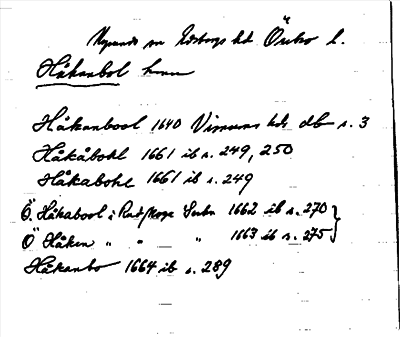 Nysunds sn Edsbergs hd Örebro l.
Håkanbol hmn
Håkanbool 1640 Visnums hds db s. 3
Håkåbohl 1661 ib s. 249, 250
Håkabohl 1661 ib s. 249
Ö. Håkabool i Rudskoga Socken 1662 ib s. 270
Ö " Håken " " " 1663 ib s. 275
Håkanbo 1664 ib s. 289